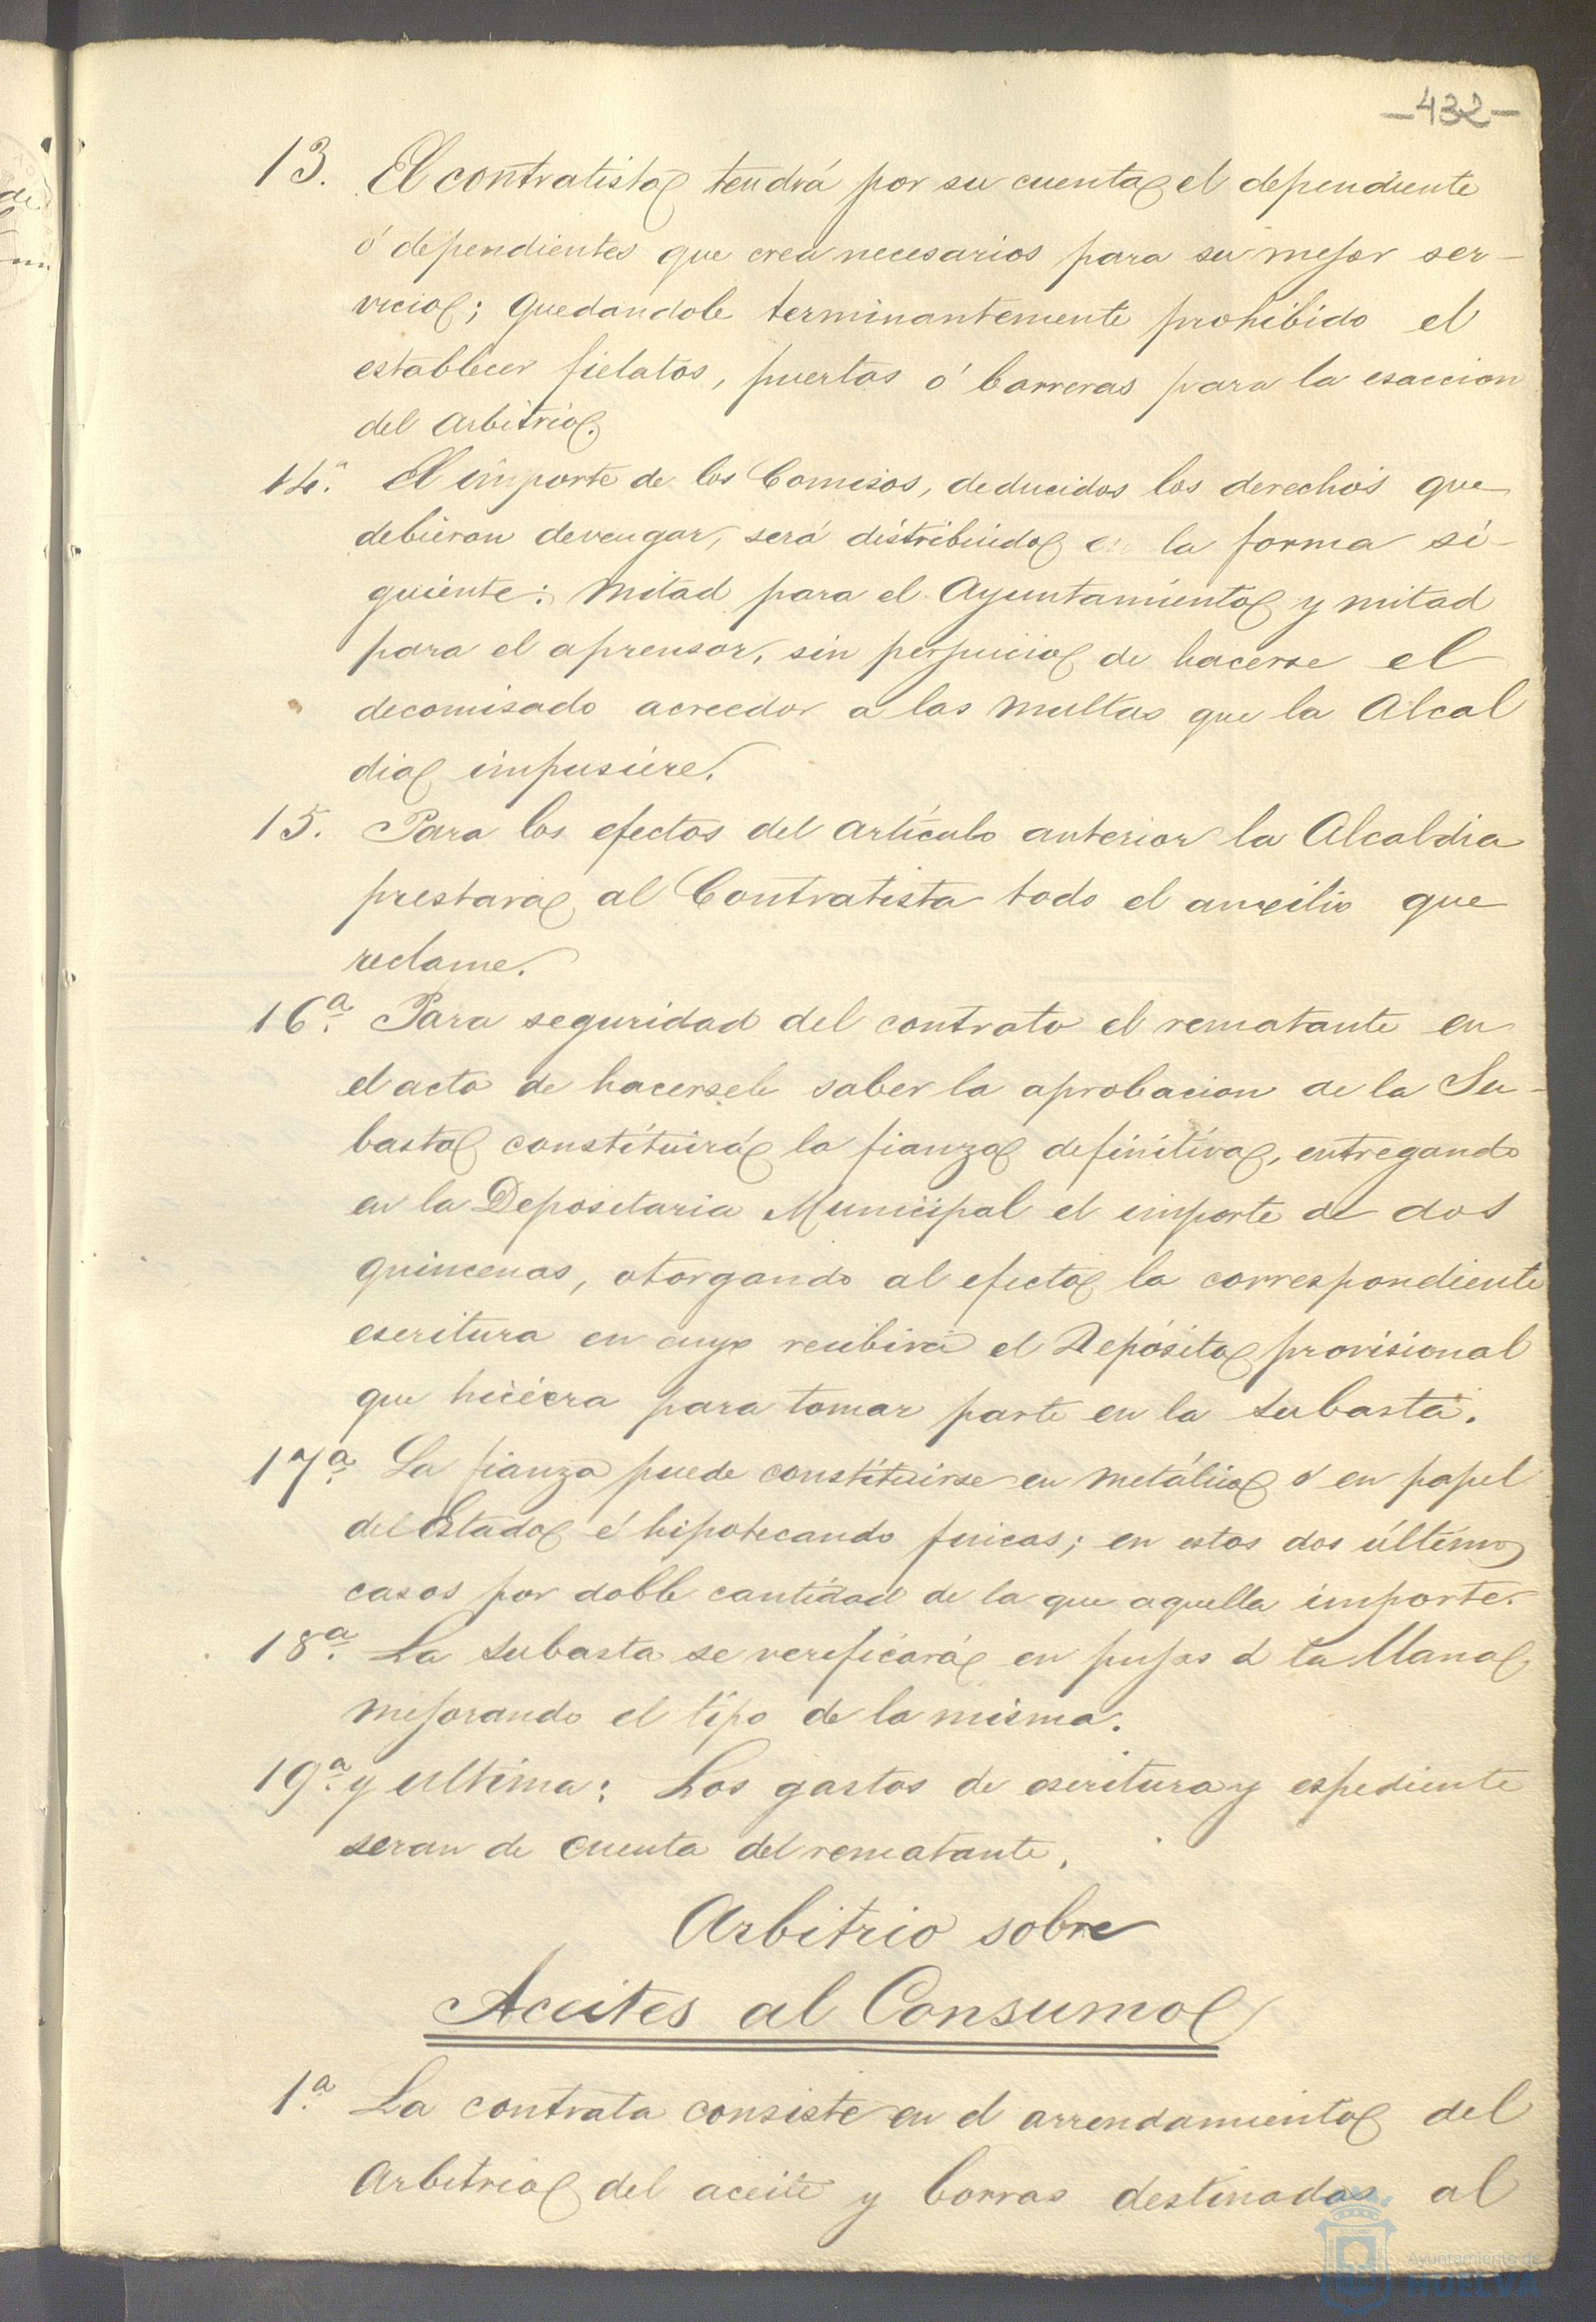 -432-
13. El contratista tendrá por su cuenta el dependiente
ó dependientes que crea necesarios para su mejor ser-
vicio; quedandole terminantemente prohibido el
establecer fielatos, puertas ó barreras para la esaccion
del arbitrio.
14.ª El importe de los Comisos, deducidos los derechos que
debieron devengar, será distribuido en la forma si-
guiente: mitad para el Ayuntamiento y mitad
para el aprensor, sin perjuicio de hacerse el
decomisado acreedor a las multas que la Alcal
dia impusiere.
15. Para los efectos del artículo anterior la Alcaldia
prestará al Contratista todo el auxilio que
reclame.
16.ª Para seguridad del contrato el rematante en
el acto de hacersele saber la aprobacion de la Su-
basta constituirá la fianza definitiva, entregando
en la Depositaria Municipal el importe de dos
quincenas, otorgando al efecto la correspondiente
escritura en cuyo recibirá el Depósito provisional
que hiciera para tomar parte en la subasta.
17.ª La fianza puede constituirse en metálico ó en papel
del Estado é hipotecando fincas; en estos dos últimos
casos por doble cantidad de la que aquella importe.
18.ª La subasta se verificará en pujas á la llana
mejorando el tipo de la misma.
19.ª y ultima: Los gastos de escritura y espediente
seran de cuenta del rematante.
Arbitrio sobre
Aceites al Consumo
1.ª La contrata consiste en el arrendamiento del
arbitrio del aceite y borras destinadas al
Ayuntamiento de
HUELVA